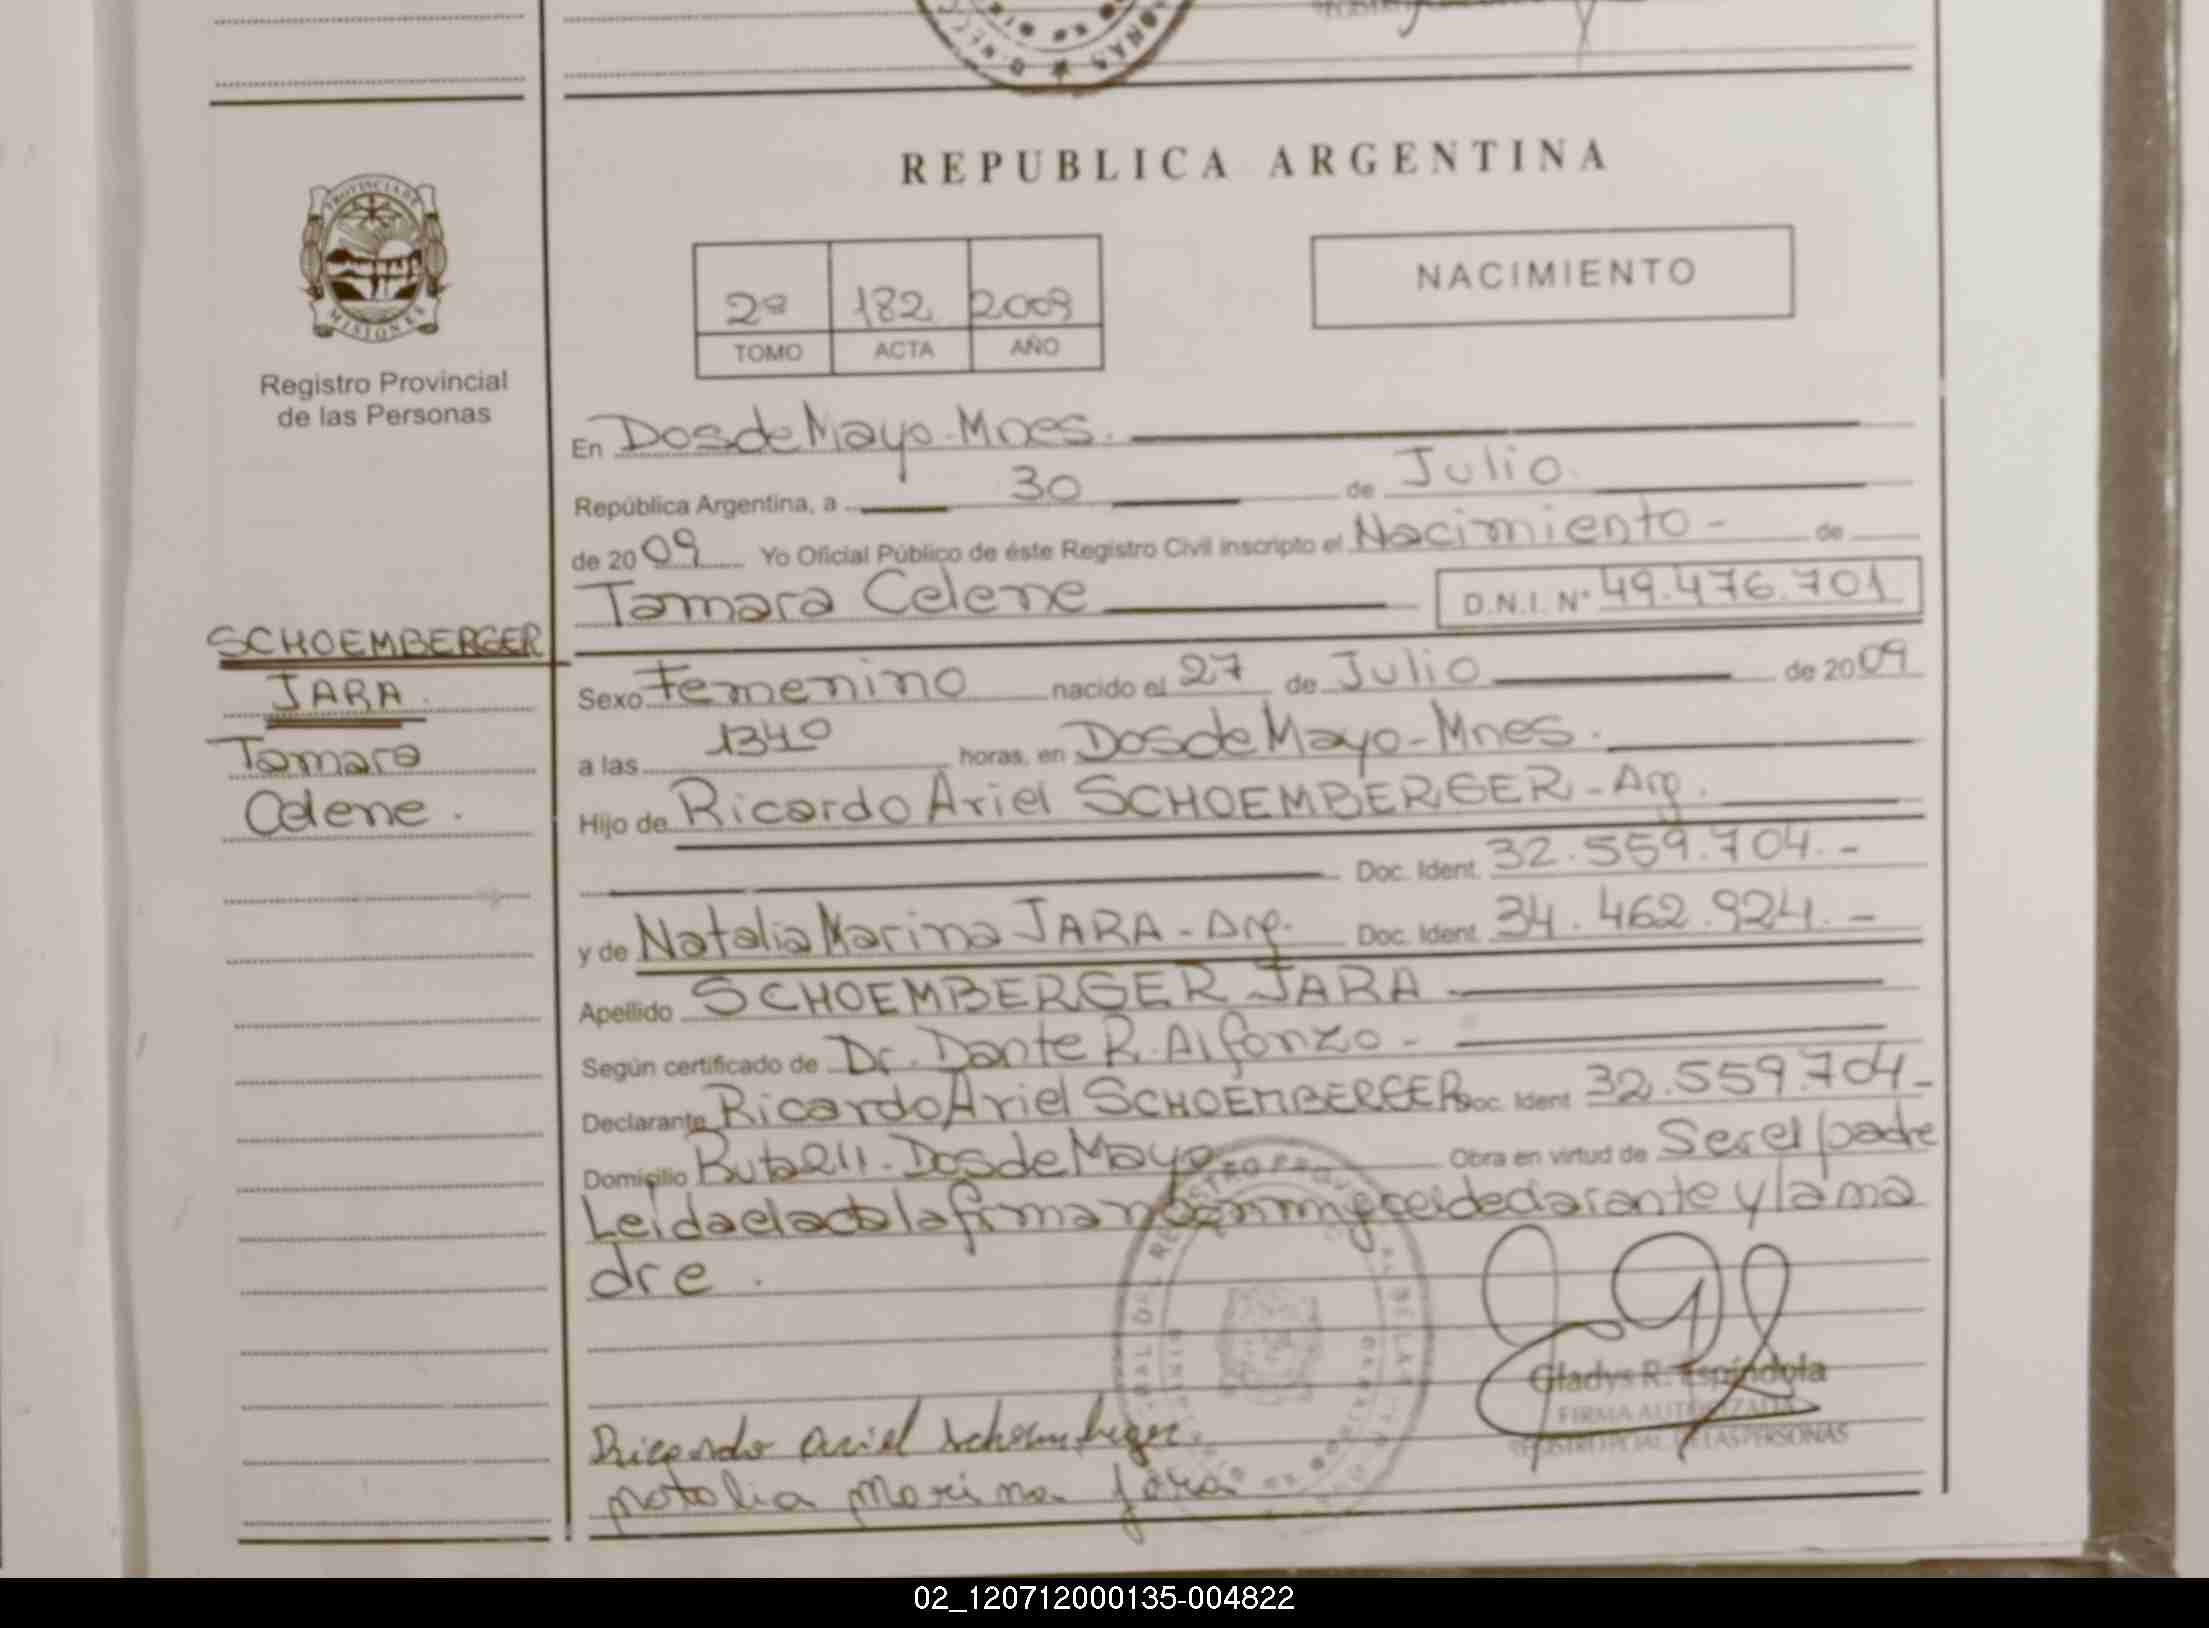 REPUBLICA ARGENTINA
PROVINCIA DE
MISIONES
Registro Provincial
de las Personas
2º 182 2009
TOMO ACTA AÑO
NACIMIENTO
En Dos de Mayo - Mnes.
República Argentina, a 30 de Julio
de 2009 Yo Oficial Público de éste Registro Civil inscripto el Nacimiento - de
Tamara Celene D.N.I. Nº 49.476.701
SCHOEMBERGER
JARA.
Tamara
Celene.
Sexo Femenino nacido el 27 de Julio de 2009
a las 1340 horas, en Dos de Mayo - Mnes.
Hijo de Ricardo Ariel SCHOEMBERGER - Arg.
Doc. Ident. 32.559.704.-
y de Natalia Marina JARA - Arg. Doc. Ident. 34.462.924.-
Apellido SCHOEMBERGER JARA
Según certificado de Dr. Dante R. Alfonzo -
Declarante Ricardo Ariel SCHOEMBERGER Doc. Ident 32.559.704-
Domicilio Ruta 211 - Dos de Mayo Obra en virtud de Ser el padre
Leida el acta la firman declarante y la ma
dre.
Gladys R. Espíndola
FIRMA AUTORIZADA
REGISTRO PCIAL. DE LAS PERSONAS
Ricardo Ariel Schoemberger
Natalia Marina Jara
02_120712000135-004822